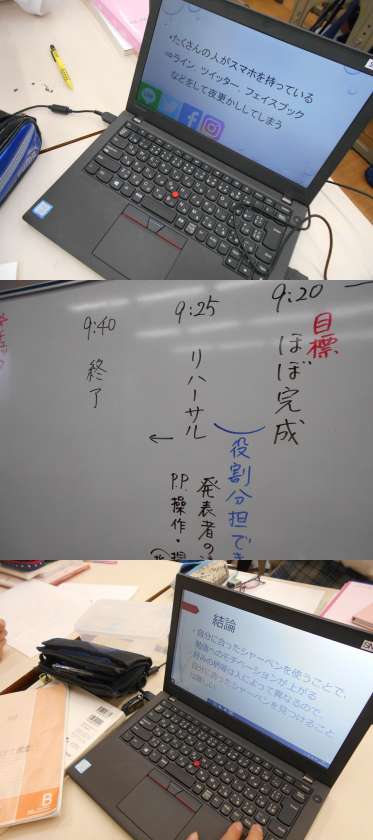 ・たくさんの人がスマホを持っている
⇒ライン、ツイッター、フェイスブック
などをして夜更かししてしまう
9:20
目標
ほぼ完成
9:25
リハーサル
役割分担でき
発表者の
P.P.操作・
←
9:40
終了
結論
・自分に合ったシャーペンを使うことで、
勉強へのモチベーションが上がる
自分に合ったシャーペンを見つけること
B